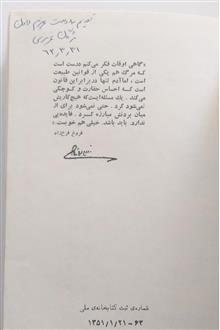 تقدیم به دوست عزیزم
۶۲,۳,۳۱
«گاهی اوقات فکر می‌کنم درست است
که مرگ هم یکی از قوانین طبیعت
است، اما آدم تنها در برابر این قانون
است که احساس حقارت و کوچکی
می‌کند. یك مسئله‌ایست که هیچ کاریش
نمی‌شود کرد. حتی نمی‌شود برای از
میان بردنش مبارزه کرد. فایده‌یی
ندارد. باید باشد. خیلی هم خوبست.»
فروغ فرخزاد
شماره‌ی ثبت کتابخانه‌ی ملی
۶۳-۱۳۵۱/۱/۲۱